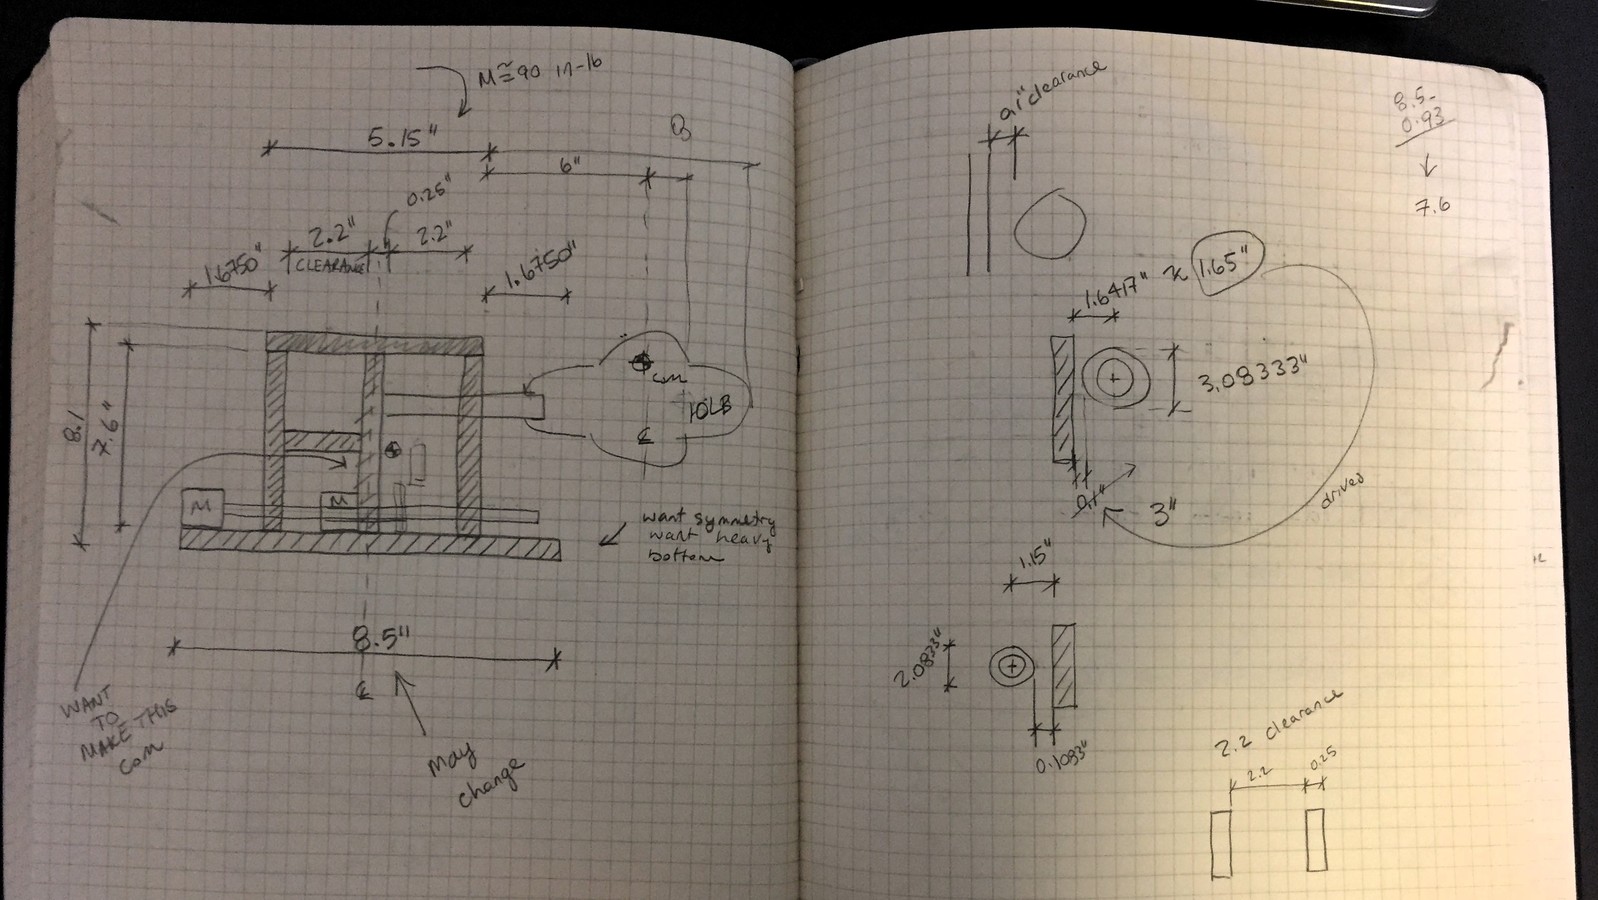 M ≅ 90 in-lb
5.15"
6"
0.25"
2.2"
CLEARANCE
2.2"
1.6750"
1.6750"
8.1
7.6"
com
10LB
℄
M
M
want symmetry
want heavy
bottom
8.5"
℄
WANT
TO
MAKE THIS
com
May
change
0.1" clearance
8.5-
0.93
↓
7.6
1.6417" ≈ 1.65"
3.08333"
0.1"
3"
drives
1.15"
2.0833"
0.1083"
2.2 clearance
2.2
0.25